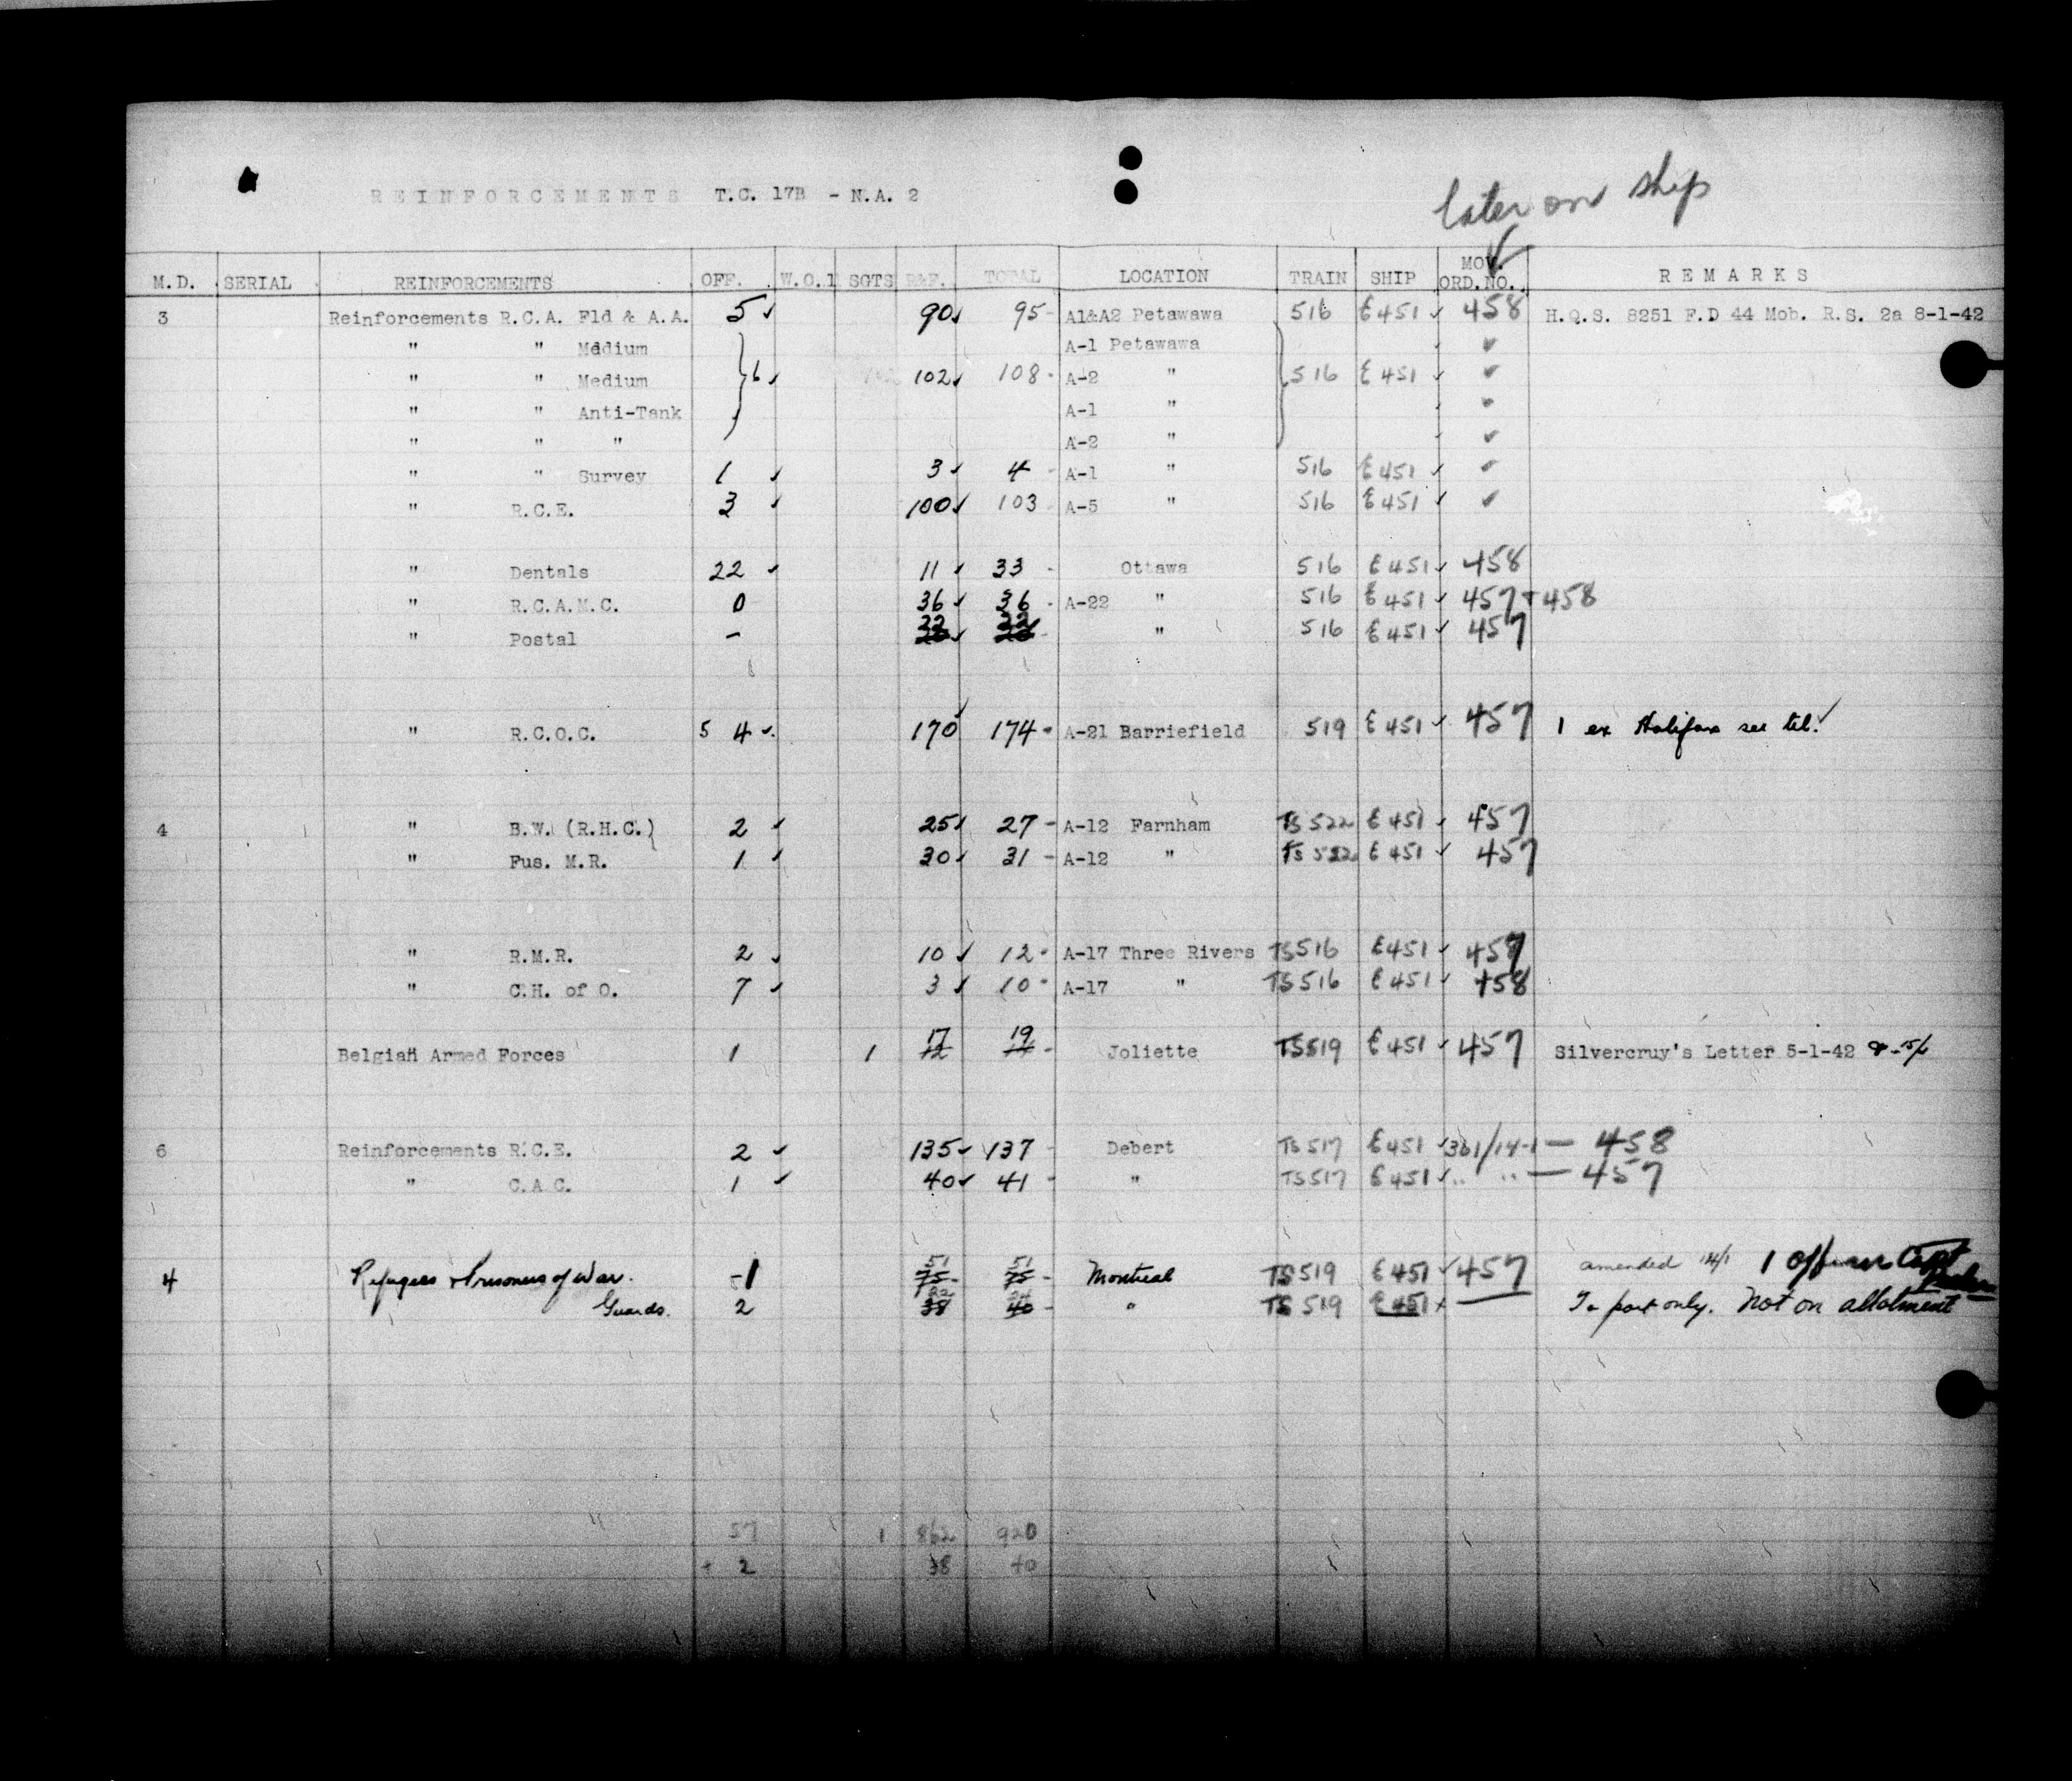 REINFORCEMENTS T.C. 17B - N.A. 2
later on ship
M.D. SERIAL REINFORCEMENTS OFF. W.O.1 SGTS R&F. TOTAL LOCATION TRAIN SHIP MOV. ORD.NO. REMARKS
3 Reinforcements R.C.A. Fld & A.A. 5 90 95 A1&A2 Petawawa 516 E451 458 H.Q.S. 8251 F.D 44 Mob. R.S. 2a 8-1-42
" " Medium A-1 Petawawa
" " Medium 6 102 108 A-2 " 516 E451
" " Anti-Tank A-1 "
" " " A-2 "
" " Survey 1 3 4 A-1 " 516 E451
" R.C.E. 3 100 103 A-5 " 516 E451
" Dentals 22 11 33 Ottawa 516 E451 458
" R.C.A.M.C. 0 36 36 A-22 " 516 E451 457+458
" Postal - 22 22 " 516 E451 457
" R.C.O.C. 5 4 170 174 A-21 Barriefield 519 E451 457 1 ex Halifax see tel.
4 " B.W. (R.H.C.) 2 25 27 A-12 Farnham TS 522 E451 457
" Fus. M.R. 1 30 31 A-12 " TS 522 E451 457
" R.M.R. 2 10 12 A-17 Three Rivers TS516 E451 457
" C.H. of O. 7 3 10 A-17 " TS516 E451 458
Belgian Armed Forces 1 1 17 12 19 14 Joliette TS519 E451 457 Silvercruy's Letter 5-1-42
6 Reinforcements R.C.E. 2 135 137 Debert TS 517 E451 361/14-1 — 458
" C.A.C. 1 40 41 " TS517 E451 .. .. — 457
4 Refugees & Prisoners of War. -1 51 75 51 75 Montreal TS519 E451 457 amended 14/1 1 officer Capt
Guards. 2 38 40 " TS 519 E451 — To port only. Not on allotment
57 1 862 920
+ 2 38 40